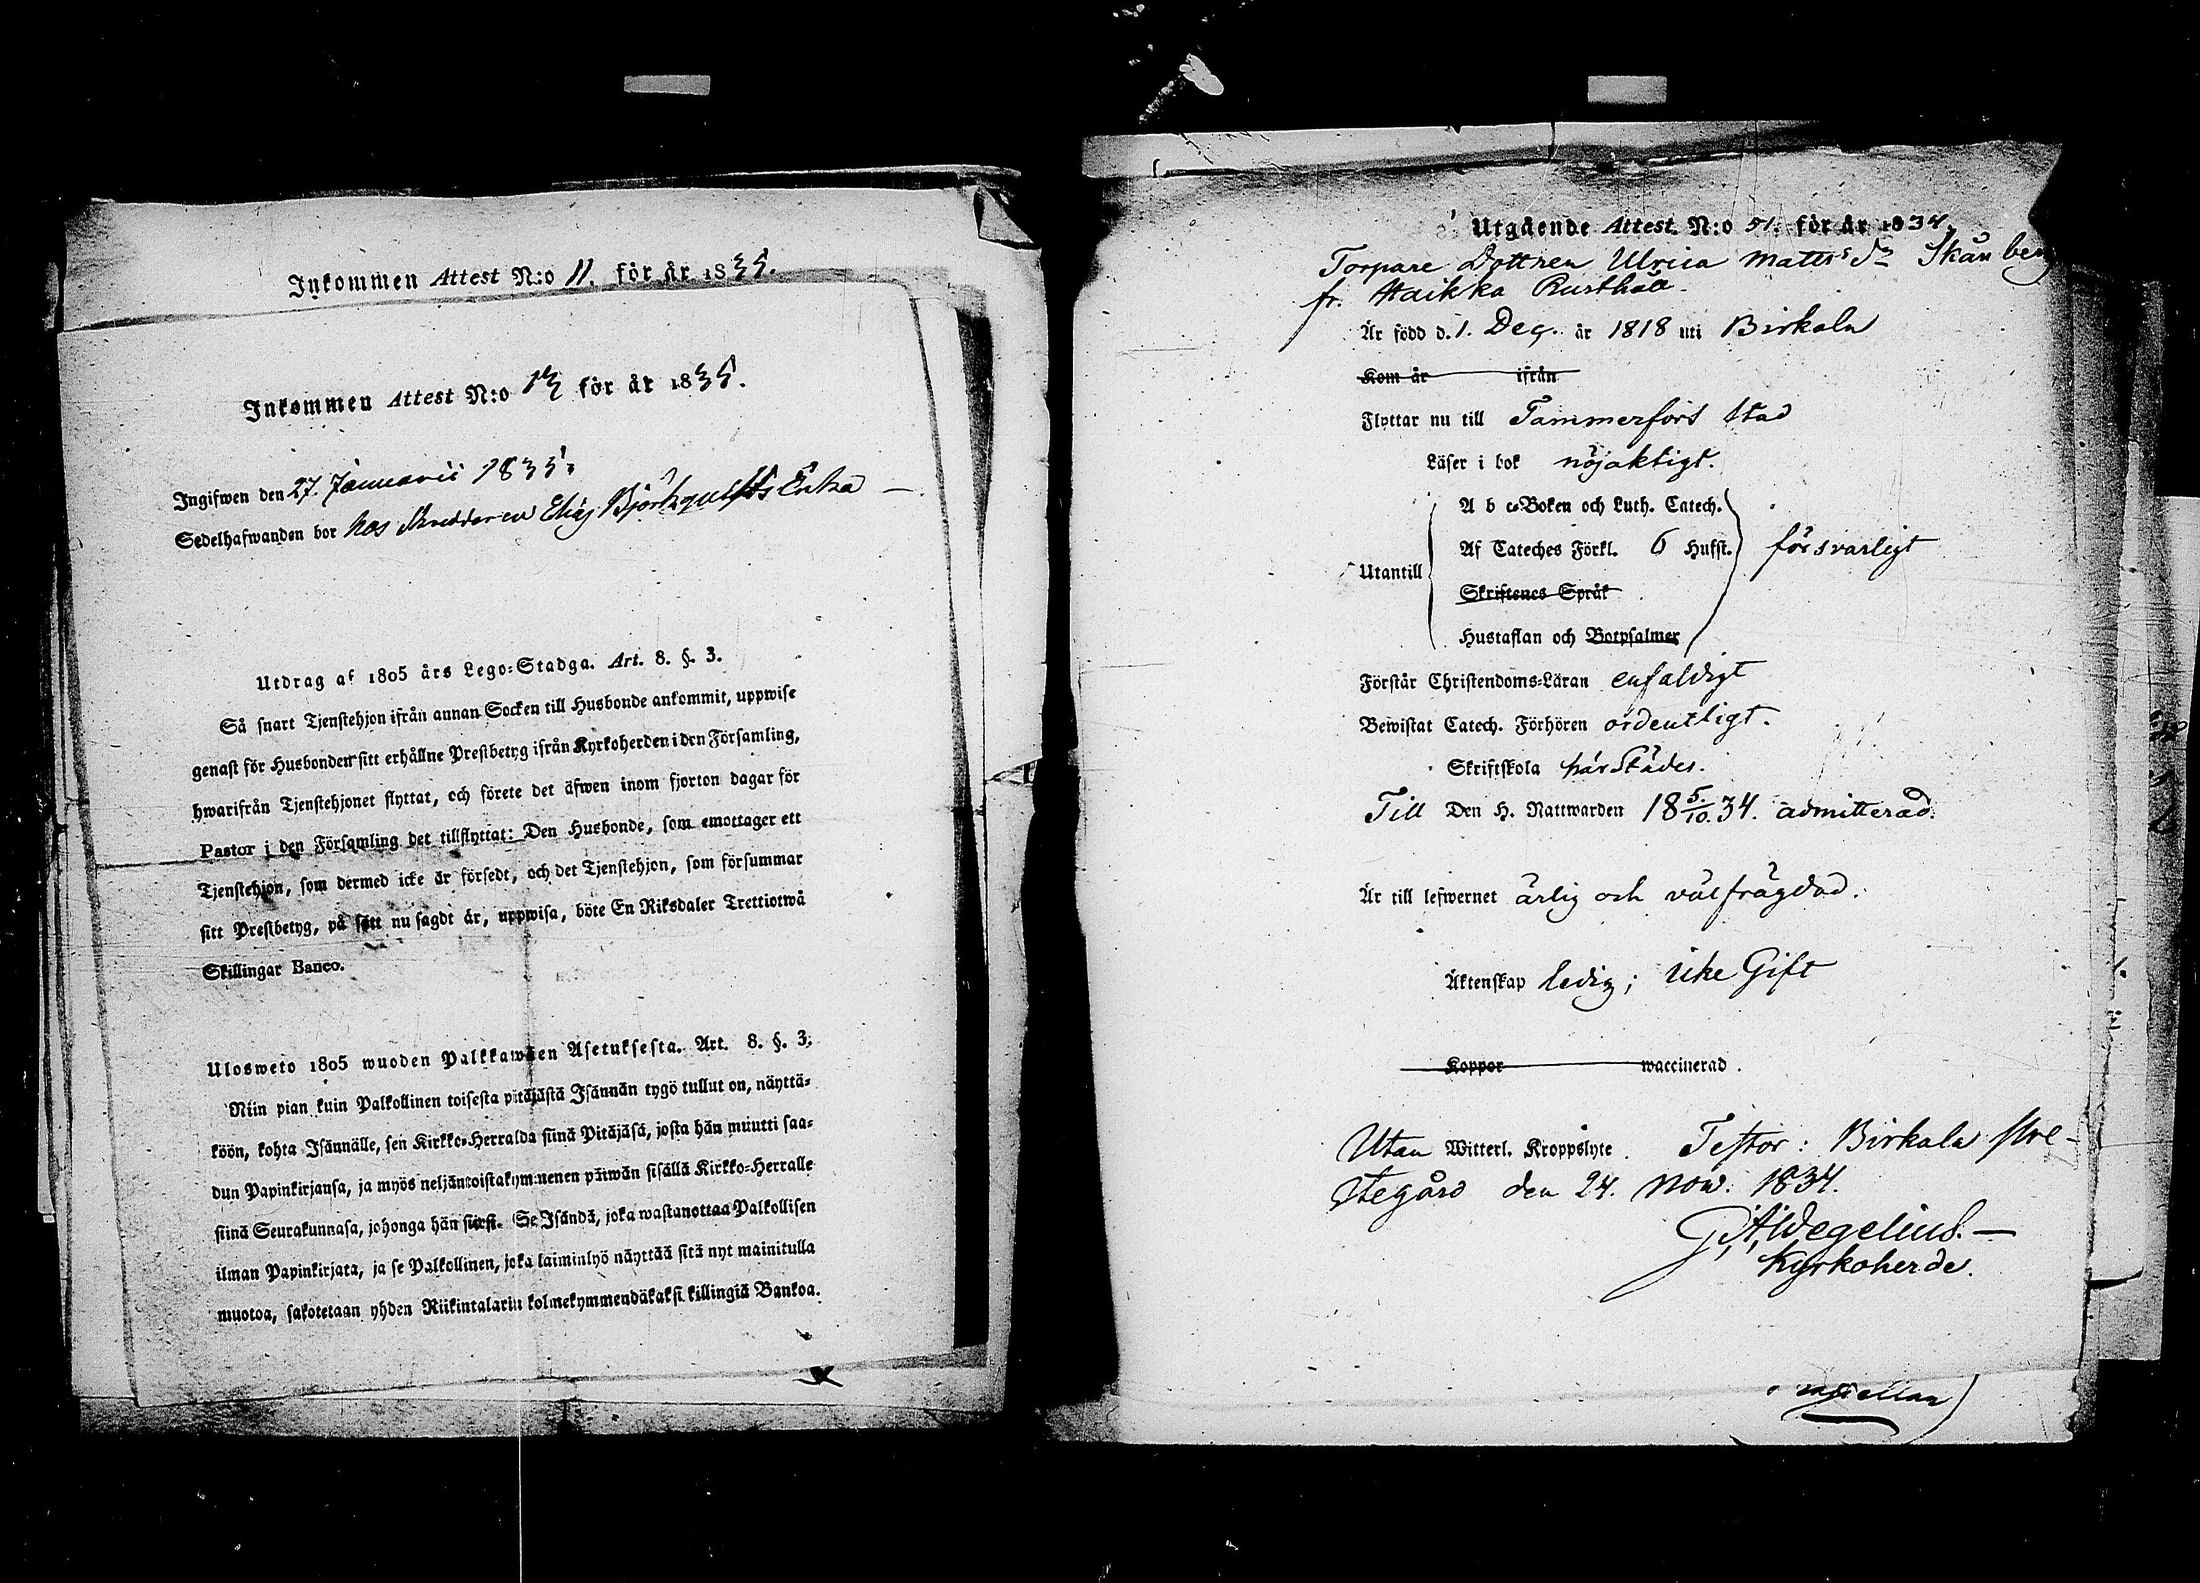 Inkommen Attest N:o 11. för år 1835.
Inkommen Attest N:o 13 för år 1835.
Ingifwen den 27. Januarii 1835.
Sedelhafwanden bor hos Skreddaren Elias Björkqvists Enka —
Utdrag af 1805 års Lego-Stadga. Art. 8. §. 3.
Så snart Tjenstehjon ifrån annan Socken till Husbonde ankommit, uppwise
genast för Husbonden sitt erhållne Prestbetyg ifrån Kyrkoherden i den Församling,
hwarifrån Tjenstehjonet flyttat, och förete det äfwen inom fjorton dagar för
Pastor i den Församling det tillflyttat: Den Husbonde, som emottager ett
Tjenstehjon, som dermed icke är försedt, och det Tjenstehjon, som försummar
sitt Prestbetyg, på sätt nu sagdt är, uppwisa, böte En Riksdaler Trettiotwå
Skillingar Banco.
Ulosweto 1805 wuoden Palkkawäen Asetuksesta. Art. 8. §. 3.
Niin pian kuin Palkollinen toisesta pitäjästä Isännän tygö tullut on, näyttä-
köön, kohta Isännälle, sen Kirkko-Herralda siinä Pitäjäsä, josta hän muutti saa-
dun Papinkirjansa, ja myös neljäntoistakymmenen päiwän sisällä Kirkko-Herralle
siinä Seurakunnasa, johonga hän siirsi. Se Isändä, joka wastanottaa Palkollisen
ilman Papinkirjata, ja se Palkollinen, joka laiminlyö näyttää sitä nyt mainitulla
muotoa, sakotetaan yhden Riikintalarin kolmekymmendäkaksi killingiä Bankoa.
Utgående Attest. N:o 51. för år 1834.
Torpare Dottren Ulrica Matts Dr Skånberg
fr. Haikka Rusthåll.
Är född d. 1. Dec. år 1818 uti Birkala
Kom år ifrån
Flyttar nu till Tammerfors Stad
Läser i bok nöjaktigt.
A b c-Boken och Luth. Catech.
Af Cateches Förkl. 6 Hufst. försvarligt
Utantill
Skriftenes Språk
Hustaflan och Botpsalmer
Förstår Christendoms-Läran enfaldigt
Bewistat Catech. Förhören ordentligt.
Skriftskola härstädes.
Till Den H. Nattwarden 18 5/10. 34. admitterad.
Är till lefwernet ärlig och välfrägdad.
Äktenskap ledig; icke Gift
Koppor waccinerad.
Utan Witterl. Kroppslyte. Testor: Birkala Pre-
stegård den 24. Nov. 1834.
G. A. Wegelius. —
Kyrkoherde.